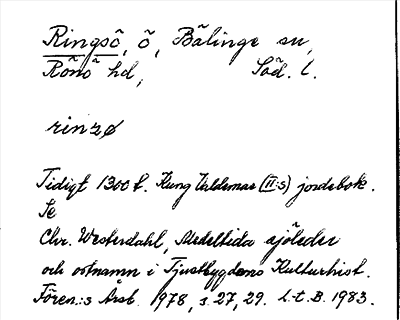 Ringsö, ö, Bälinge sn,
Rönö hd, Söd. l.
rinzø
Tidigt 1300 t. Kung Valdemar (II:s) jordebok.
Se
Chr. Westerdahl, Medeltida sjöleder
och ortnamn i Tjustbygdens Kulturhist.
Fören:s Årsb. 1978, s. 27, 29. L.t.B. 1983.